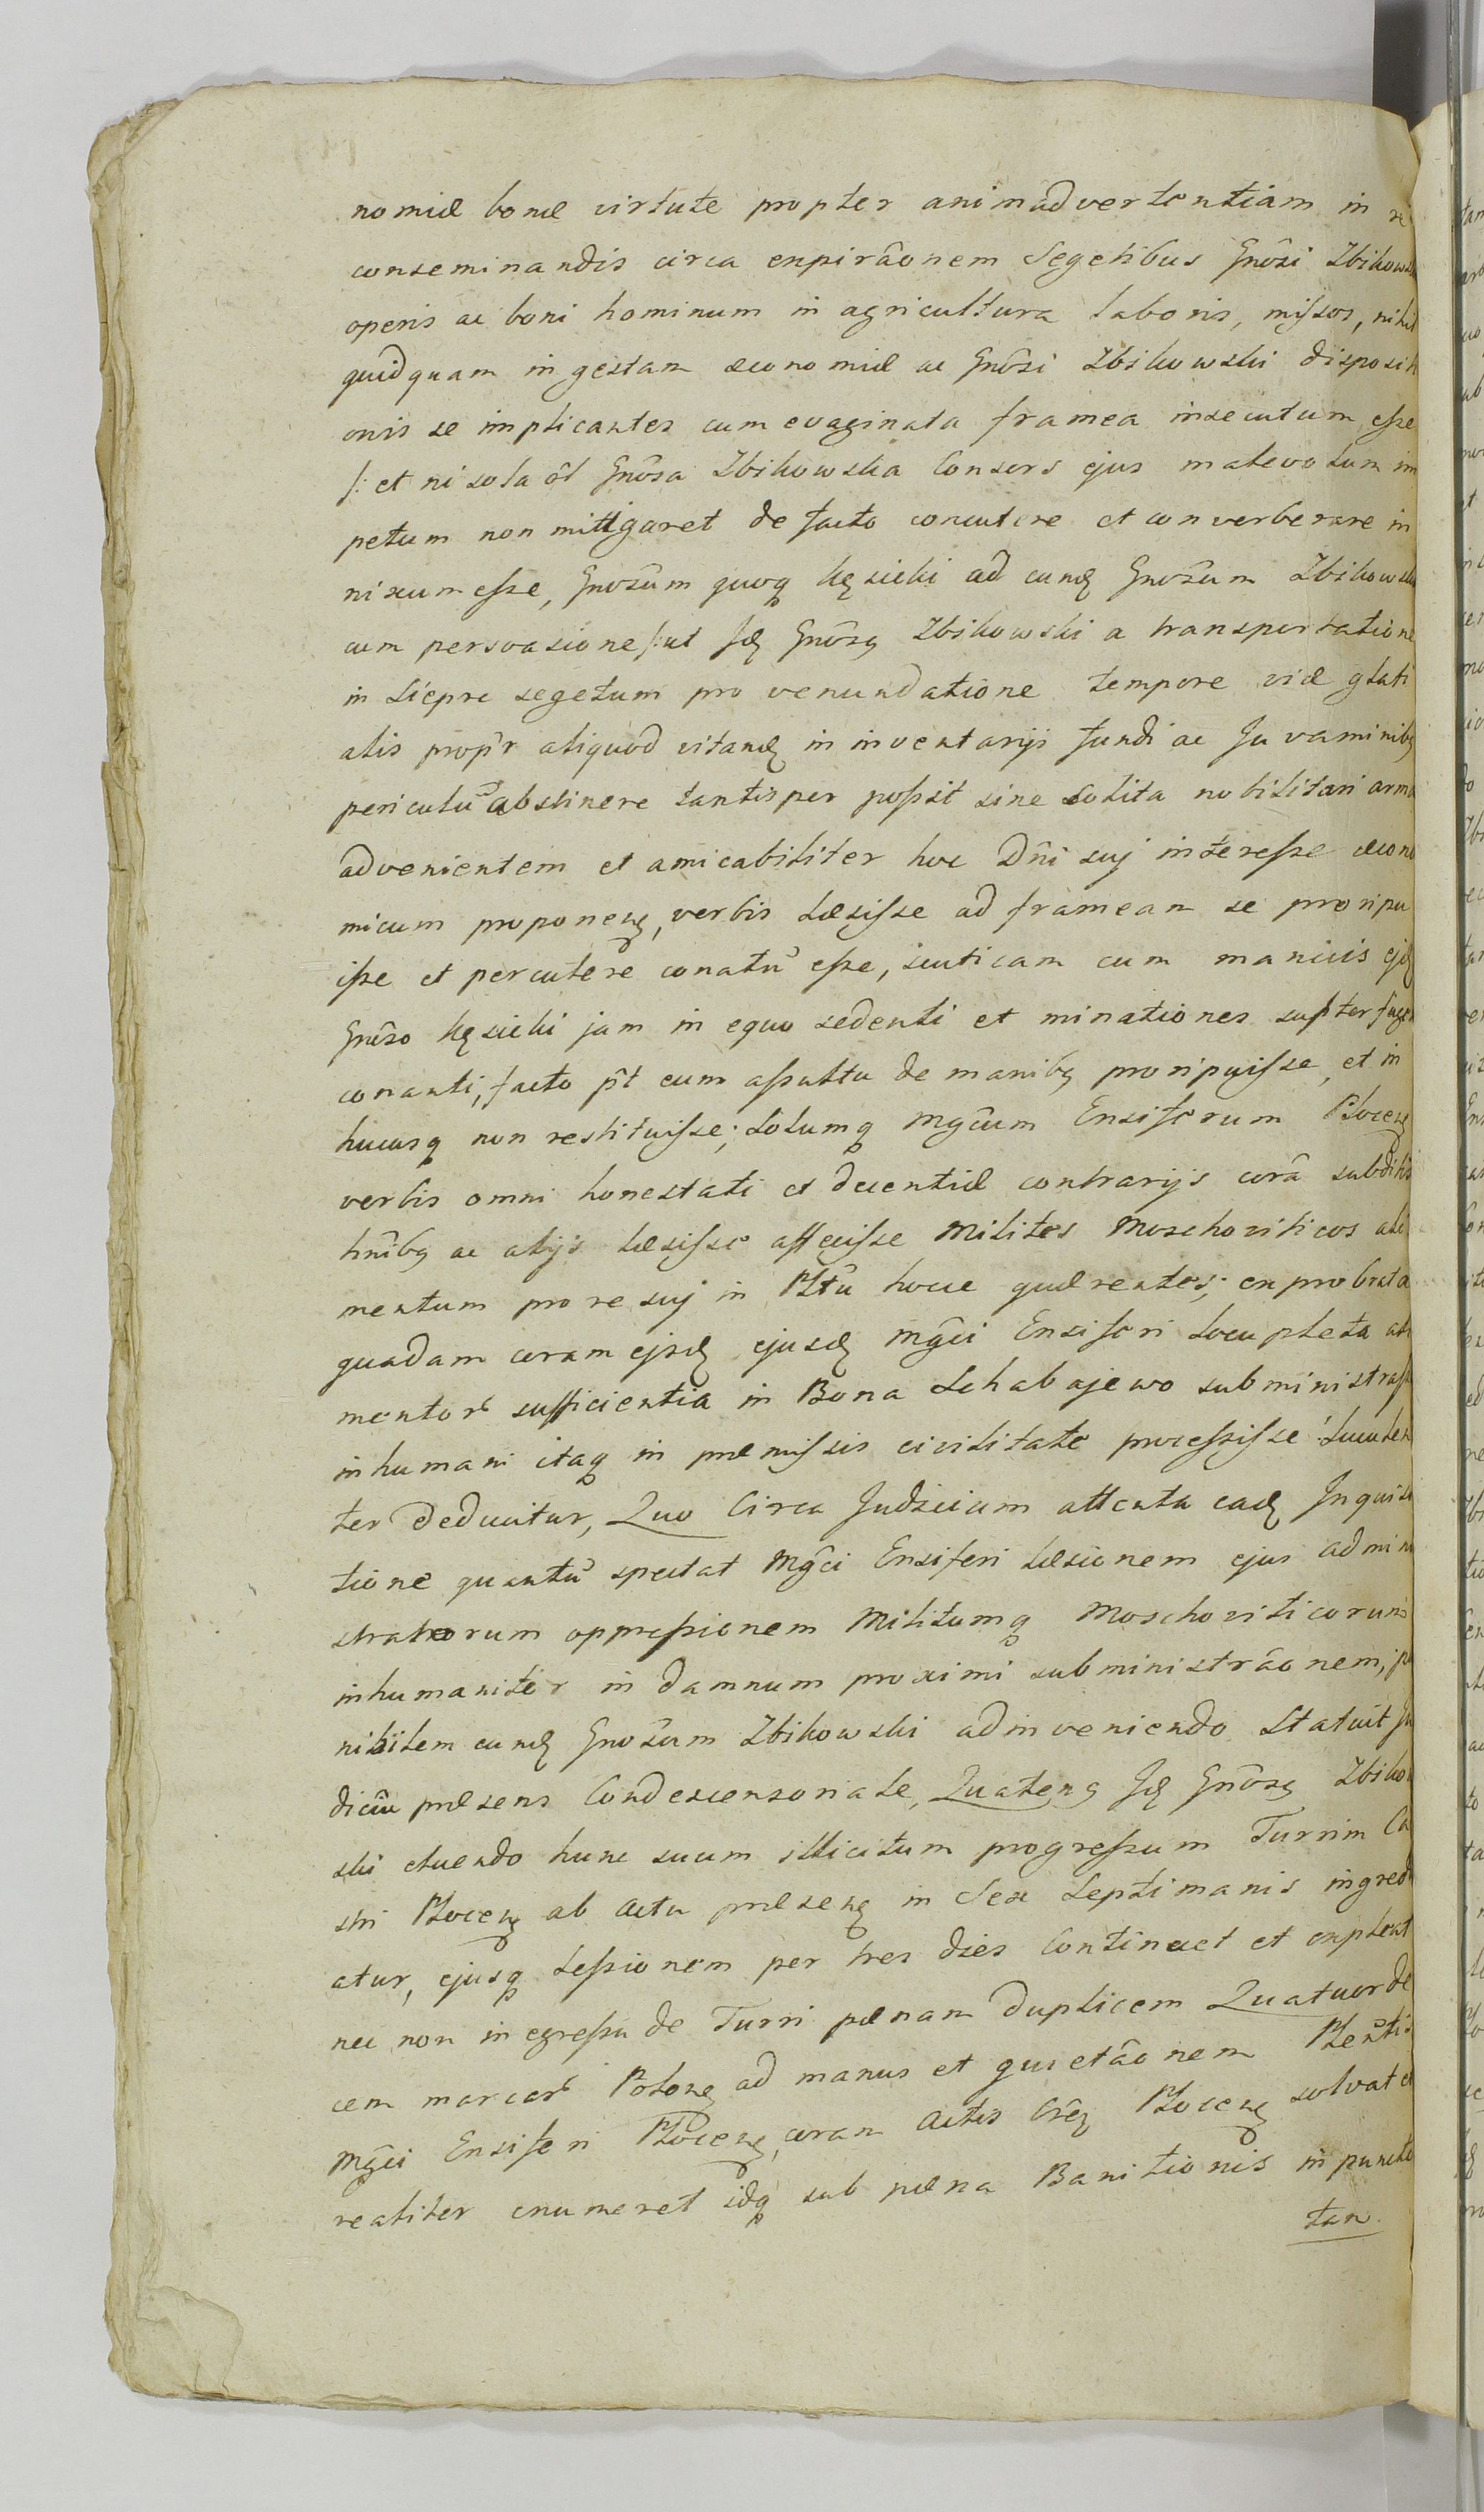 nomiæ bonæ virtute propter animadvertentiam in re
conseminandis circa expirâonem Segetibus Gnôsi Zbikowski
operis ac boni hominum in agricultura laboris, missos, nihil
quidquam in gestam œconomiæ ac Gnôsi Zbikowski dispositi
onis se implicantes cum evaginata framea insecutum esse
/: et ni sola ôl Gnôsa Zbikowska Consors ejus malevolum im
petum non mittigaret de facto concutere et converberare in
nixum esse, Gnosûm quoq Kęsicki ad eundę Gnosûm Zbikowski
cum persvasione /: ut Idę Gnôsq Zbikowski a transportatione
in Siepre segetum pro venundatione tempore viæ glati
alis prop̂r aliquod vitandę in inventarijs fundi ac Juvaminibq
periculũ abstinere tantisper possit sine solita nobilitari arma
advenientem et amicabiliter hoc Dñi suj interesse œcono
micum proponenę, verbis læsisse ad frameam se proripu
isse et percutere conatũ esse, scuticam cum manicis ejdę
Gnôso Kęsicki jam in equo sedenti et minationes supterfuger
conanti, facto p̂t cum assultu de manibq proripuisse, et in
hucusq non restituisse; Solumq Mgĉum Ensiferum Plocenę
verbis omni honestati et decentiæ contrarijs corâ subditis
hnîbq ac alijs læsisse affecisse Milites Moschoviticos ali
mentum pro re suj in Plttû hocce quærentes; exprobrata
quadam coram ejsdę ejusdę Mgĉi Ensiferi locupleta ali
mentor̃ sufficientia in Bona Schabajewo subministrasse
inhumani itaq in præmissis civilitate processisse luculen
ter deducitur, Quo Circa Judicium attenta eadę Inquisi
tione quantũ spectat Mgĉi Ensiferi læsionem ejus admini
stratorum oppressionem Militumq Moschoviticorum
inhumaniter in damnum proximi subministrâonem, pu
nibilem eundę Gnosûm Zbikowski adinveniendo Statuit Ju
diciũ præsens Condescensoriale, Quatenq Idę Gnôsq Zbikow
ski eluendo hunc suum illicitum progressum Turrim Ca
stri Plocenę ab actu præsenę in Sex Septimanis ingredi
atur, ejusq Sessionem per tres dies Continuet et expleat
nec non in egressu de Turri pœnam duplicem Quatuorde
cem marcar̃ Polonę ad manus et quietâonem Plentis
Mgĉi Ensiferi Plocenę, coram Actis Crêę Plocenę solvat et
realiter enumeret idq sub pœna Banitionis in puncto
tan.